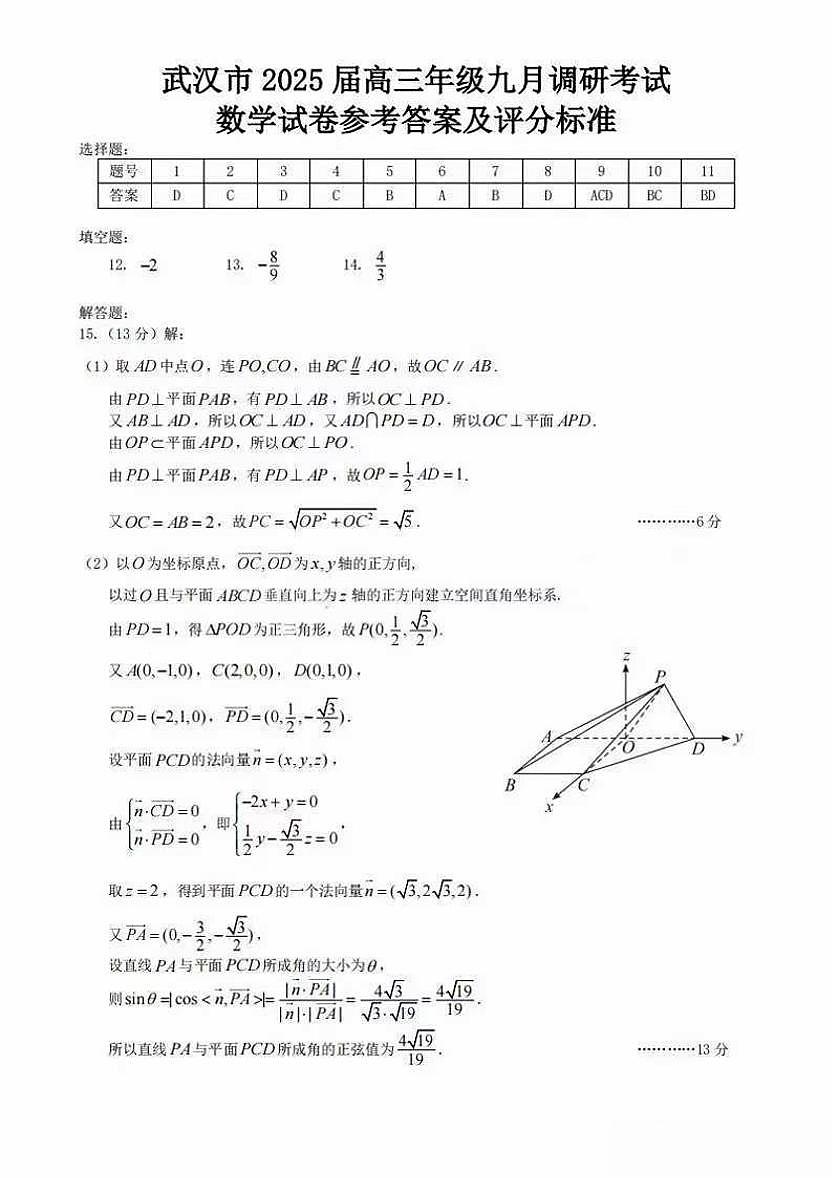 武汉市 2025 届高三年级九月调研考试
数学试卷参考答案及评分标准
选择题:
题号 1 2 3 4 5 6 7 8 9 10 11
答案 D C D C B A B D ACD BC BD
填空题:
12. −2 13. −8/9 14. 4/3
解答题:
15.（13 分）解:
（1）取 AD 中点O，连 PO,CO，由 BC ∥= AO，故OC // AB.
由 PD⊥平面PAB，有 PD⊥ AB，所以OC ⊥ PD.
又 AB⊥ AD，所以OC ⊥ AD，又AD∩PD = D，所以OC ⊥平面 APD.
由OP⊂平面 APD，所以OC ⊥ PO.
由 PD⊥平面PAB，有 PD⊥ AP，故OP = 1/2 AD = 1.
又OC = AB = 2，故PC = √(OP²+OC²) = √5. …………6 分
（2）以O 为坐标原点，OC→,OD→ 为 x, y 轴的正方向,
以过O 且与平面 ABCD 垂直向上为 z 轴的正方向建立空间直角坐标系.
由 PD=1，得 ΔPOD为正三角形，故 P(0, 1/2, √3/2).
又 A(0,−1,0)，C(2,0,0)，D(0,1,0)，
CD→ = (−2,1,0)，PD→ = (0, 1/2, −√3/2).
设平面 PCD的法向量n→ = (x, y, z)，
由{n→·CD→ = 0, n→·PD→ = 0，即{−2x + y = 0, 1/2 y − √3/2 z = 0，
取 z = 2，得到平面 PCD的一个法向量n→ = (√3, 2√3, 2).
又 PA→ = (0, −3/2, −√3/2)，
设直线 PA与平面 PCD所成角的大小为θ，
则 sinθ =| cos < n→, PA→ >|= |n→·PA→| / |n→|·|PA→| = 4√3 / √3·√19 = 4√19 / 19.
所以直线 PA与平面PCD 所成角的正弦值为 4√19 / 19. …………13 分
z
P
A
O
D
y
B
C
x